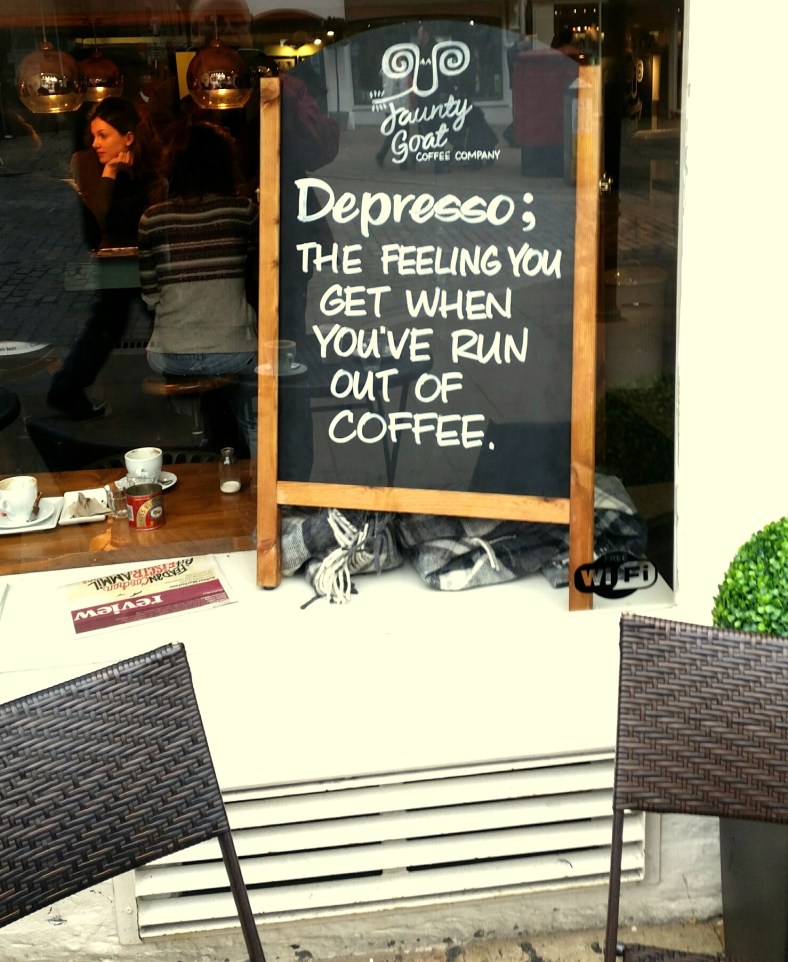 Jaunty
Goat
COFFEE COMPANY
Depresso;
THE FEELING YOU
GET WHEN
YOU'VE RUN
OUT OF
COFFEE.
FREE
Wi Fi
review